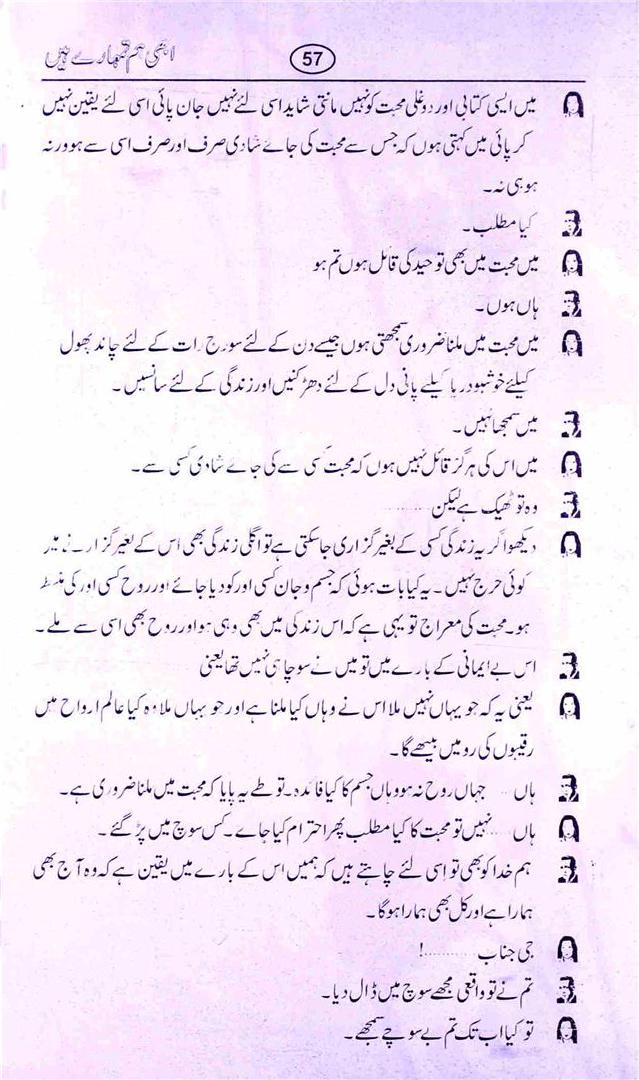 ابھی ہم تمہارے ہیں
57
میں ایسی کتابی اور دوغلی محبت کو نہیں مانتی شاید اسی لئے نہیں جان پائی اسی لئے یقین نہیں
کر پائی میں کہتی ہوں کہ جس سے محبت کی جائے شادی صرف اور صرف اسی سے ہو ورنہ
ہو ہی نہ۔
کیا مطلب۔
میں محبت میں بھی توحید کی قائل ہوں تم ہو
ہاں ہوں۔
میں محبت میں ملنا ضروری سمجھتی ہوں جیسے دن کے لئے سورج رات کے لئے چاند پھول
کیلئے خوشبو دریا کیلئے پانی دل کے لئے دھڑکنیں اور زندگی کے لئے سانسیں۔
میں سمجھا نہیں۔
میں اس کی ہرگز قائل نہیں ہوں کہ محبت کسی سے کی جائے شادی کسی سے۔
وہ تو ٹھیک ہے لیکن ...........
دیکھو اگر یہ زندگی کسی کے بغیر گزاری جا سکتی ہے تو اگلی زندگی بھی اس کے بغیر گزارنے میں
کوئی حرج نہیں۔ یہ کیا بات ہوئی کہ جسم و جان کسی اور کو دیا جائے اور روح کسی اور کی
ہو۔ محبت کی معراج تو یہی ہے کہ اس زندگی میں بھی وہی ہو اور روح بھی اسی سے ملے۔
اس بے ایمانی کے بارے میں تو میں نے سوچا ہی نہیں تھا یعنی
یعنی یہ کہ جو یہاں نہیں ملا اس نے وہاں کیا ملنا ہے اور جو یہاں ملا وہ کیا عالم ارواح میں
رقیبوں کی رو میں بیٹھے گا۔
ہاں ... جہاں روح نہ ہو وہاں جسم کا کیا فائدہ۔ تو طے یہ پایا کہ محبت میں ملنا ضروری ہے۔
ہاں ..... نہیں تو محبت کا کیا مطلب پھر احترام کیا جائے۔ کس سوچ میں پڑ گئے۔
ہم خدا کو بھی تو اسی لئے چاہتے ہیں کہ ہمیں اس کے بارے میں یقین ہے کہ وہ آج بھی
ہمارا ہے اور کل بھی ہمارا ہوگا۔
جی جناب ............!
تم نے تو واقعی مجھے سوچ میں ڈال دیا۔
تو کیا اب تک تم بے سوچے سمجھے۔